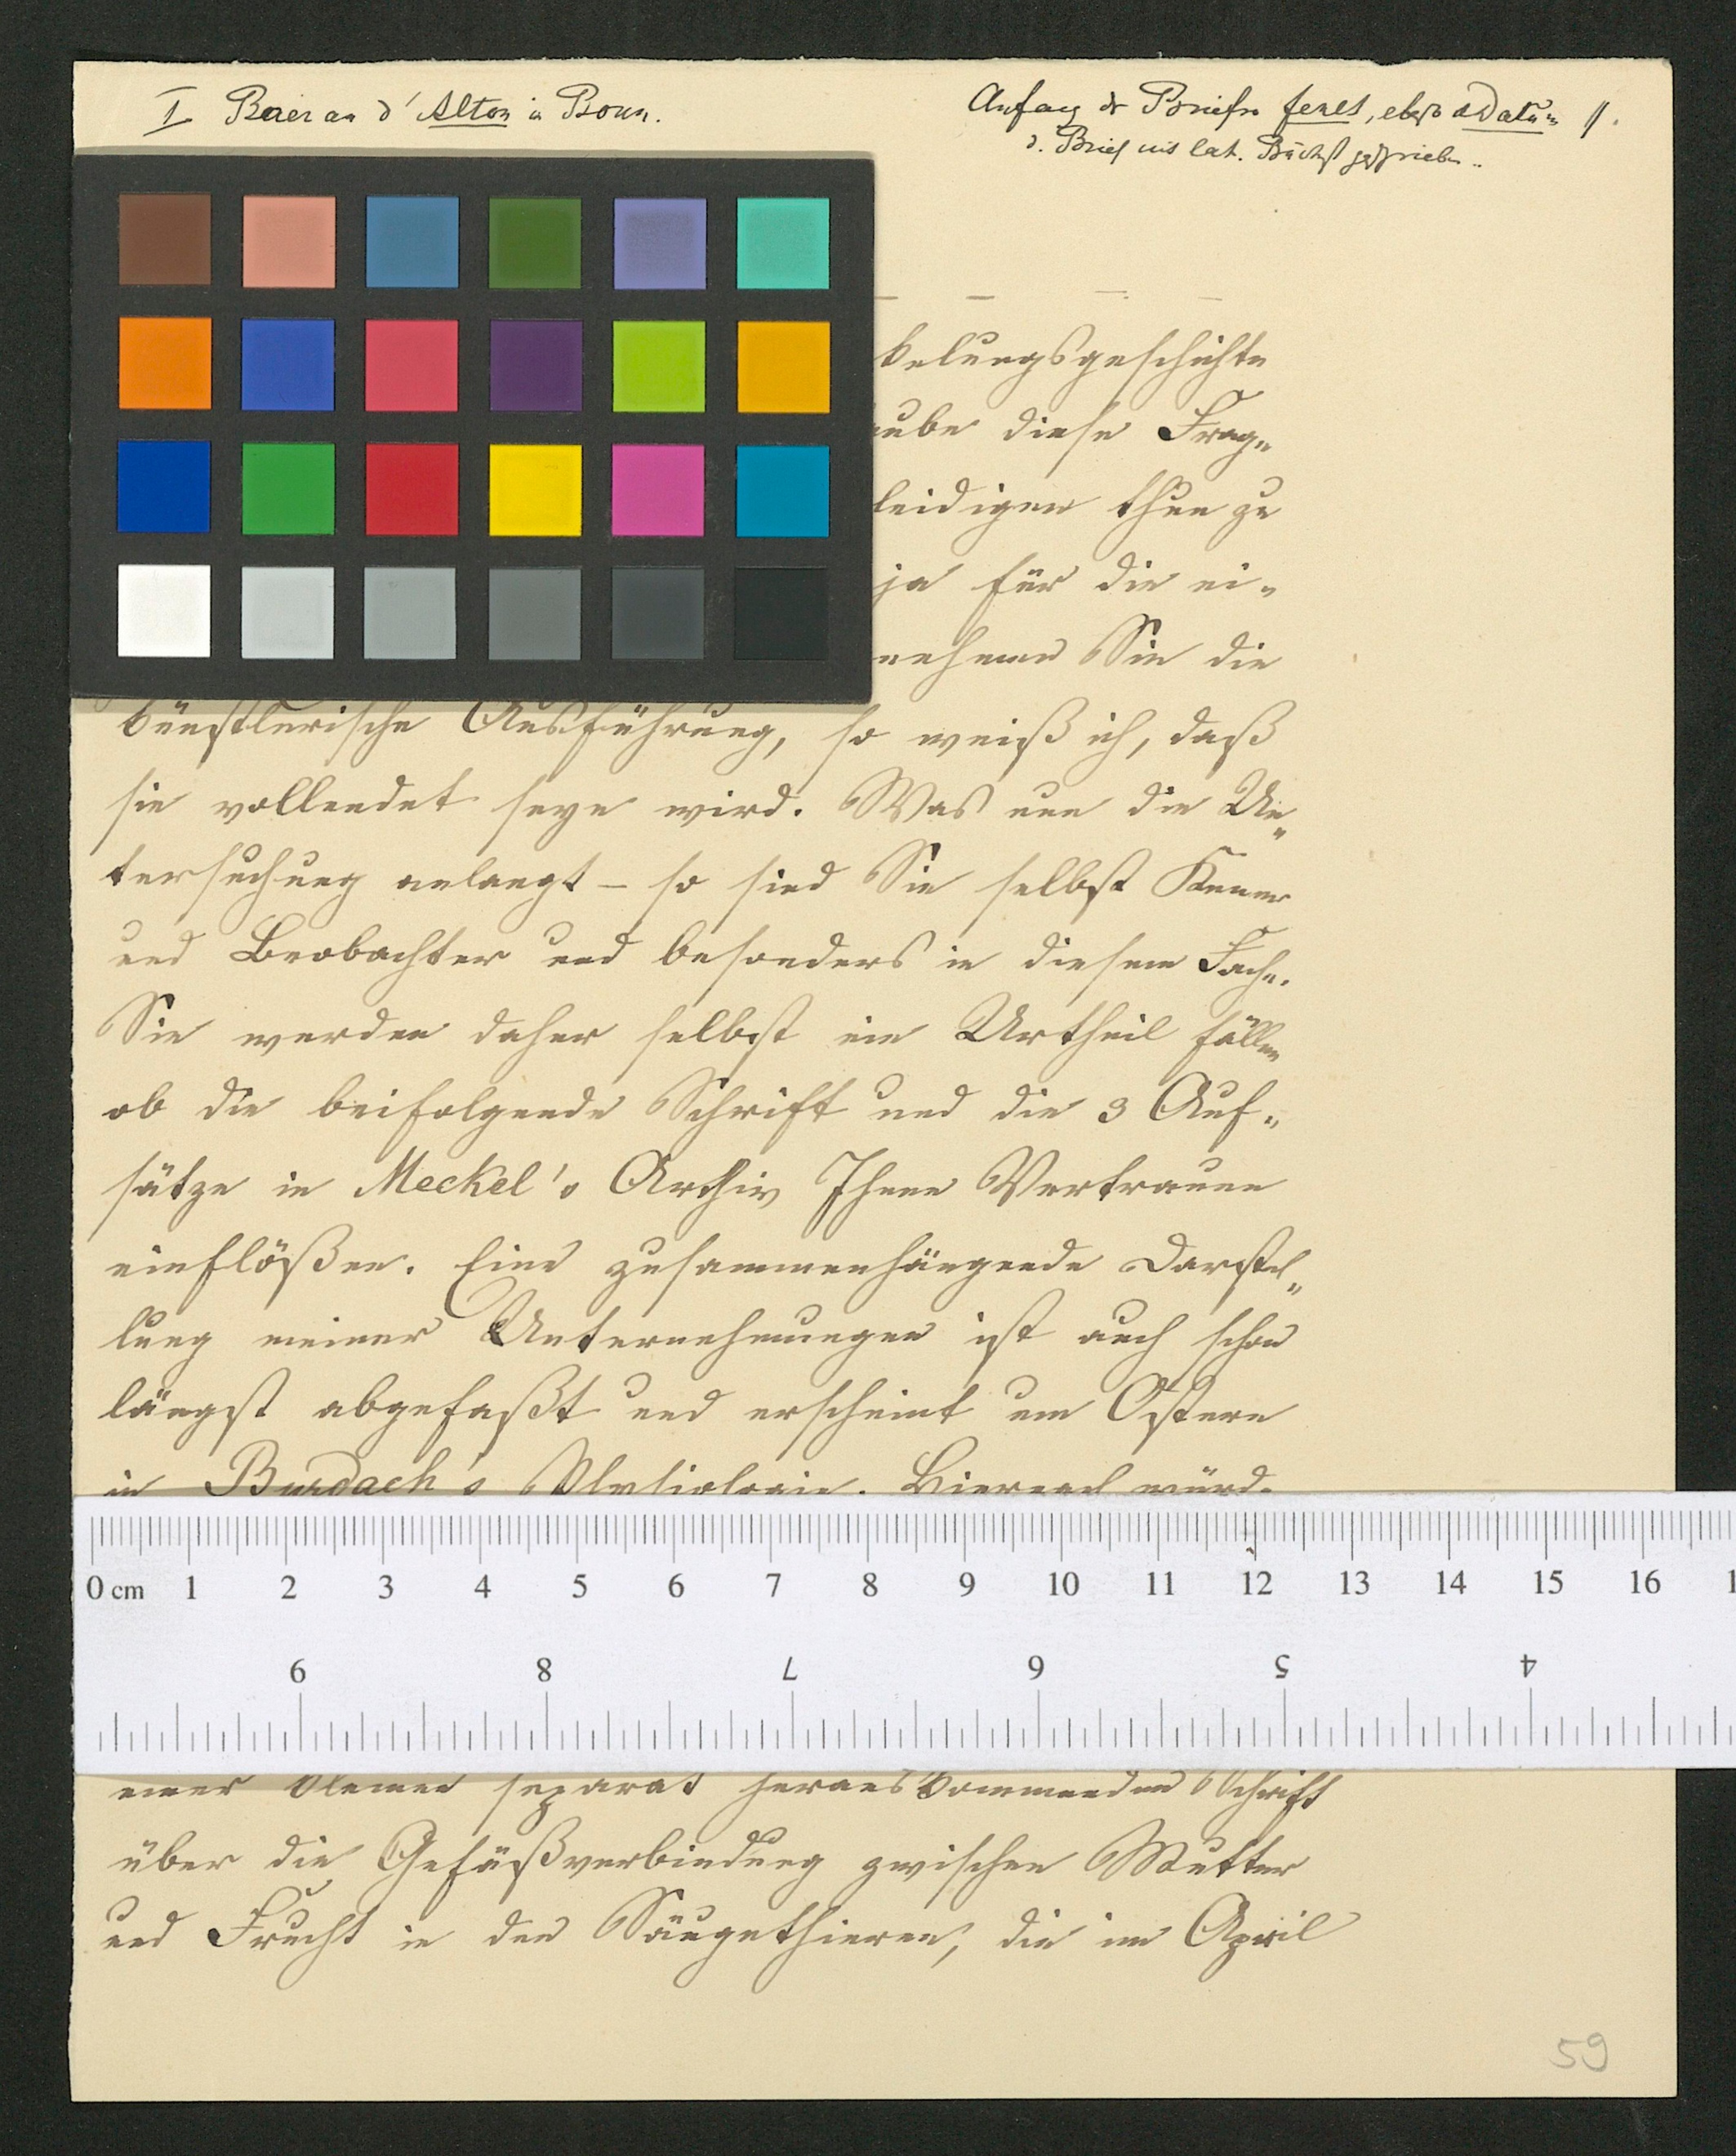 I Baer an d'Alton in Bonn.
Anfang des Briefes fehlt, ebenso d Datum 1.
d. Brief mit lat. Buchst geschrieben.
kelungsgeschichte
aube diese Frage
leidigen thun zu
ja für die ei-
nehmen Sie die
künstlerische Ausführung, so weiß ich, daß
sie vollendet seyn wird. Was nun die Un-
tersuchung anlangt – so sind Sie selbst Kenner
und Beobachter und besonders in diesem Fache.
Sie werden daher selbst ein Urtheil fällen
ob die beifolgende Schrift und die 3 Auf-
sätze in Meckel's Archiv Ihnen Vertrauen
einflößen. Eine zusammenhängende Darstel-
lung meiner Unternehmungen ist auch schon
längst abgefaßt und erscheint um Ostern
in Burdach's Physiologie. Hiernach würde
0 cm 1 2 3 4 5 6 7 8 9 10 11 12 13 14 15 16 1
9 8 7 6 5 4
einer kleinen separat herauskommenden Schrift
über die Gefäßverbindung zwischen Mutter
und Frucht in den Säugethieren, die im April
59